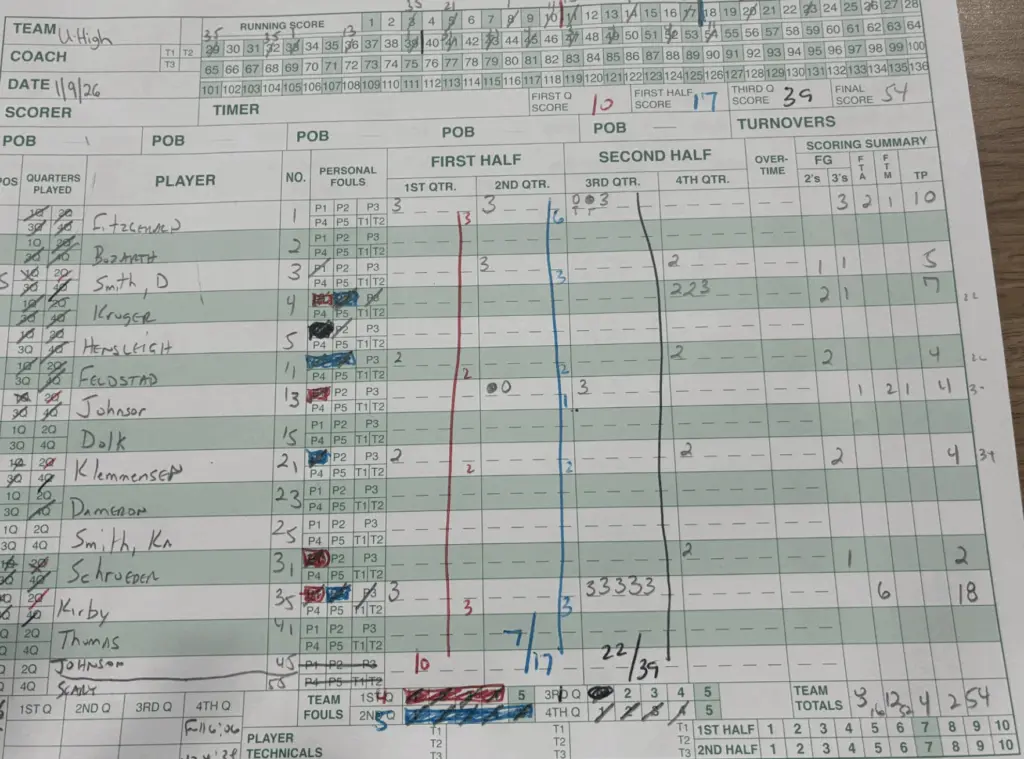 TEAM U-High RUNNING SCORE 1 2 3 4 5 6 7 8 9 10 11 12 13 14 15 16 17 18 19 20 21 22 23 24 25 26 27 28
29 30 31 32 33 34 35 36 37 38 39 40 41 42 43 44 45 46 47 48 49 50 51 52 53 54 55 56 57 58 59 60 61 62 63 64
COACH T1 T2 T3 65 66 67 68 69 70 71 72 73 74 75 76 77 78 79 80 81 82 83 84 85 86 87 88 89 90 91 92 93 94 95 96 97 98 99 100
DATE 1/9/26 101 102 103 104 105 106 107 108 109 110 111 112 113 114 115 116 117 118 119 120 121 122 123 124 125 126 127 128 129 130 131 132 133 134 135 136
SCORER TIMER FIRST Q SCORE 10 FIRST HALF SCORE 17 THIRD Q SCORE 39 FINAL SCORE 54
POB POB POB POB POB TURNOVERS
POS QUARTERS PLAYED PLAYER NO. PERSONAL FOULS FIRST HALF SECOND HALF OVER-TIME SCORING SUMMARY
1ST QTR. 2ND QTR. 3RD QTR. 4TH QTR. FG 2's 3's FTA FTM TP
Fitzgerald 1 P1 P2 P3 P4 P5 T1 T2 3 3 3 3 6 3 2 1 10
Bozarth 2 P1 P2 P3 P4 P5 T1 T2
Smith, D 3 P1 P2 P3 P4 P5 T1 T2 3 3 2 1 1 5
Kruger 4 P3 P4 P5 T1 T2 2 2 3 2 1 7
Hensleigh 5 P2 P3 P4 P5 T1 T2
Feldstad 11 P3 P4 P5 T1 T2 2 2 2 2 2 4
Johnson 13 P2 P3 P4 P5 T1 T2 0 1 3 1 2 1 4
Dolk 15 P1 P2 P3 P4 P5 T1 T2
Klemmensen 21 P2 P3 P4 P5 T1 T2 2 2 2 2 2 4
Dameron 23 P1 P2 P3 P4 P5 T1 T2
Smith, Ka 25 P1 P2 P3 P4 P5 T1 T2
Schroeder 31 P2 P3 P4 P5 T1 T2 2 1 2
Kirby 35 P3 P4 P5 T1 T2 3 3 3 3 3 3 3 3 6 18
Thumas 41 P1 P2 P3 P4 P5 T1 T2
Johnson 45 P1 P2 P3 P4 P5 T1 T2 10 7/17 22/39
TEAM FOULS 1ST Q 4 5 3RD Q 1 2 3 4 5 TEAM TOTALS 54
2ND Q 5 4TH Q 1 2 3 4 5
1ST Q 2ND Q 3RD Q 4TH Q
PLAYER TECHNICALS T1 T2 T3 T1 T2 T3 T1 T2 T3
1ST HALF 1 2 3 4 5 6 7 8 9 10
2ND HALF 1 2 3 4 5 6 7 8 9 10